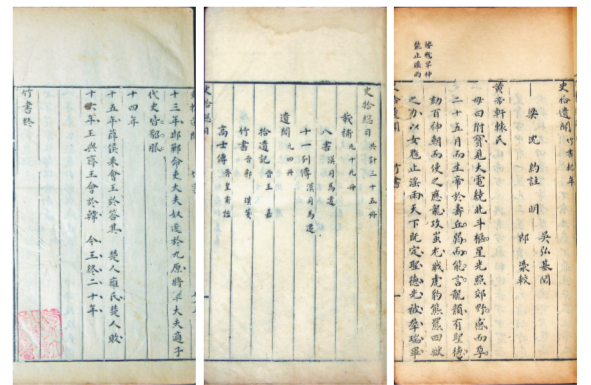 魃旱神
能止滛雨
史拾遺聞 竹書紀年
梁 沈約註 明 吳弘基閱
郎 較
黄帝軒轅氏
母曰附寶見大電繞北斗樞星光照郊野感而孕
二十五月而生帝於壽丘弱而能言龍顏有聖德
劾百神朝而使之應龍攻蚩尤戰虎豹熊羆四獸
之力以女魃止滛雨天下既定聖德光被羣瑞畢
史拾遺聞 竹書
史拾總目 共計三十五冊
八書 漢司馬遷
十一列傳 漢司馬遷
遺聞
拾遺記 晉王嘉
竹書 晉
高士傳 晉皇甫謐
史拾總目
十三年邯鄲命吏大夫奴遷於九原將軍大夫適子
代史皆貂服
十四年
十五年薛侯來會王於釜丘 楚人雍氏楚人敗
十六年王與齊王會於韓 今王終二十年
竹書終